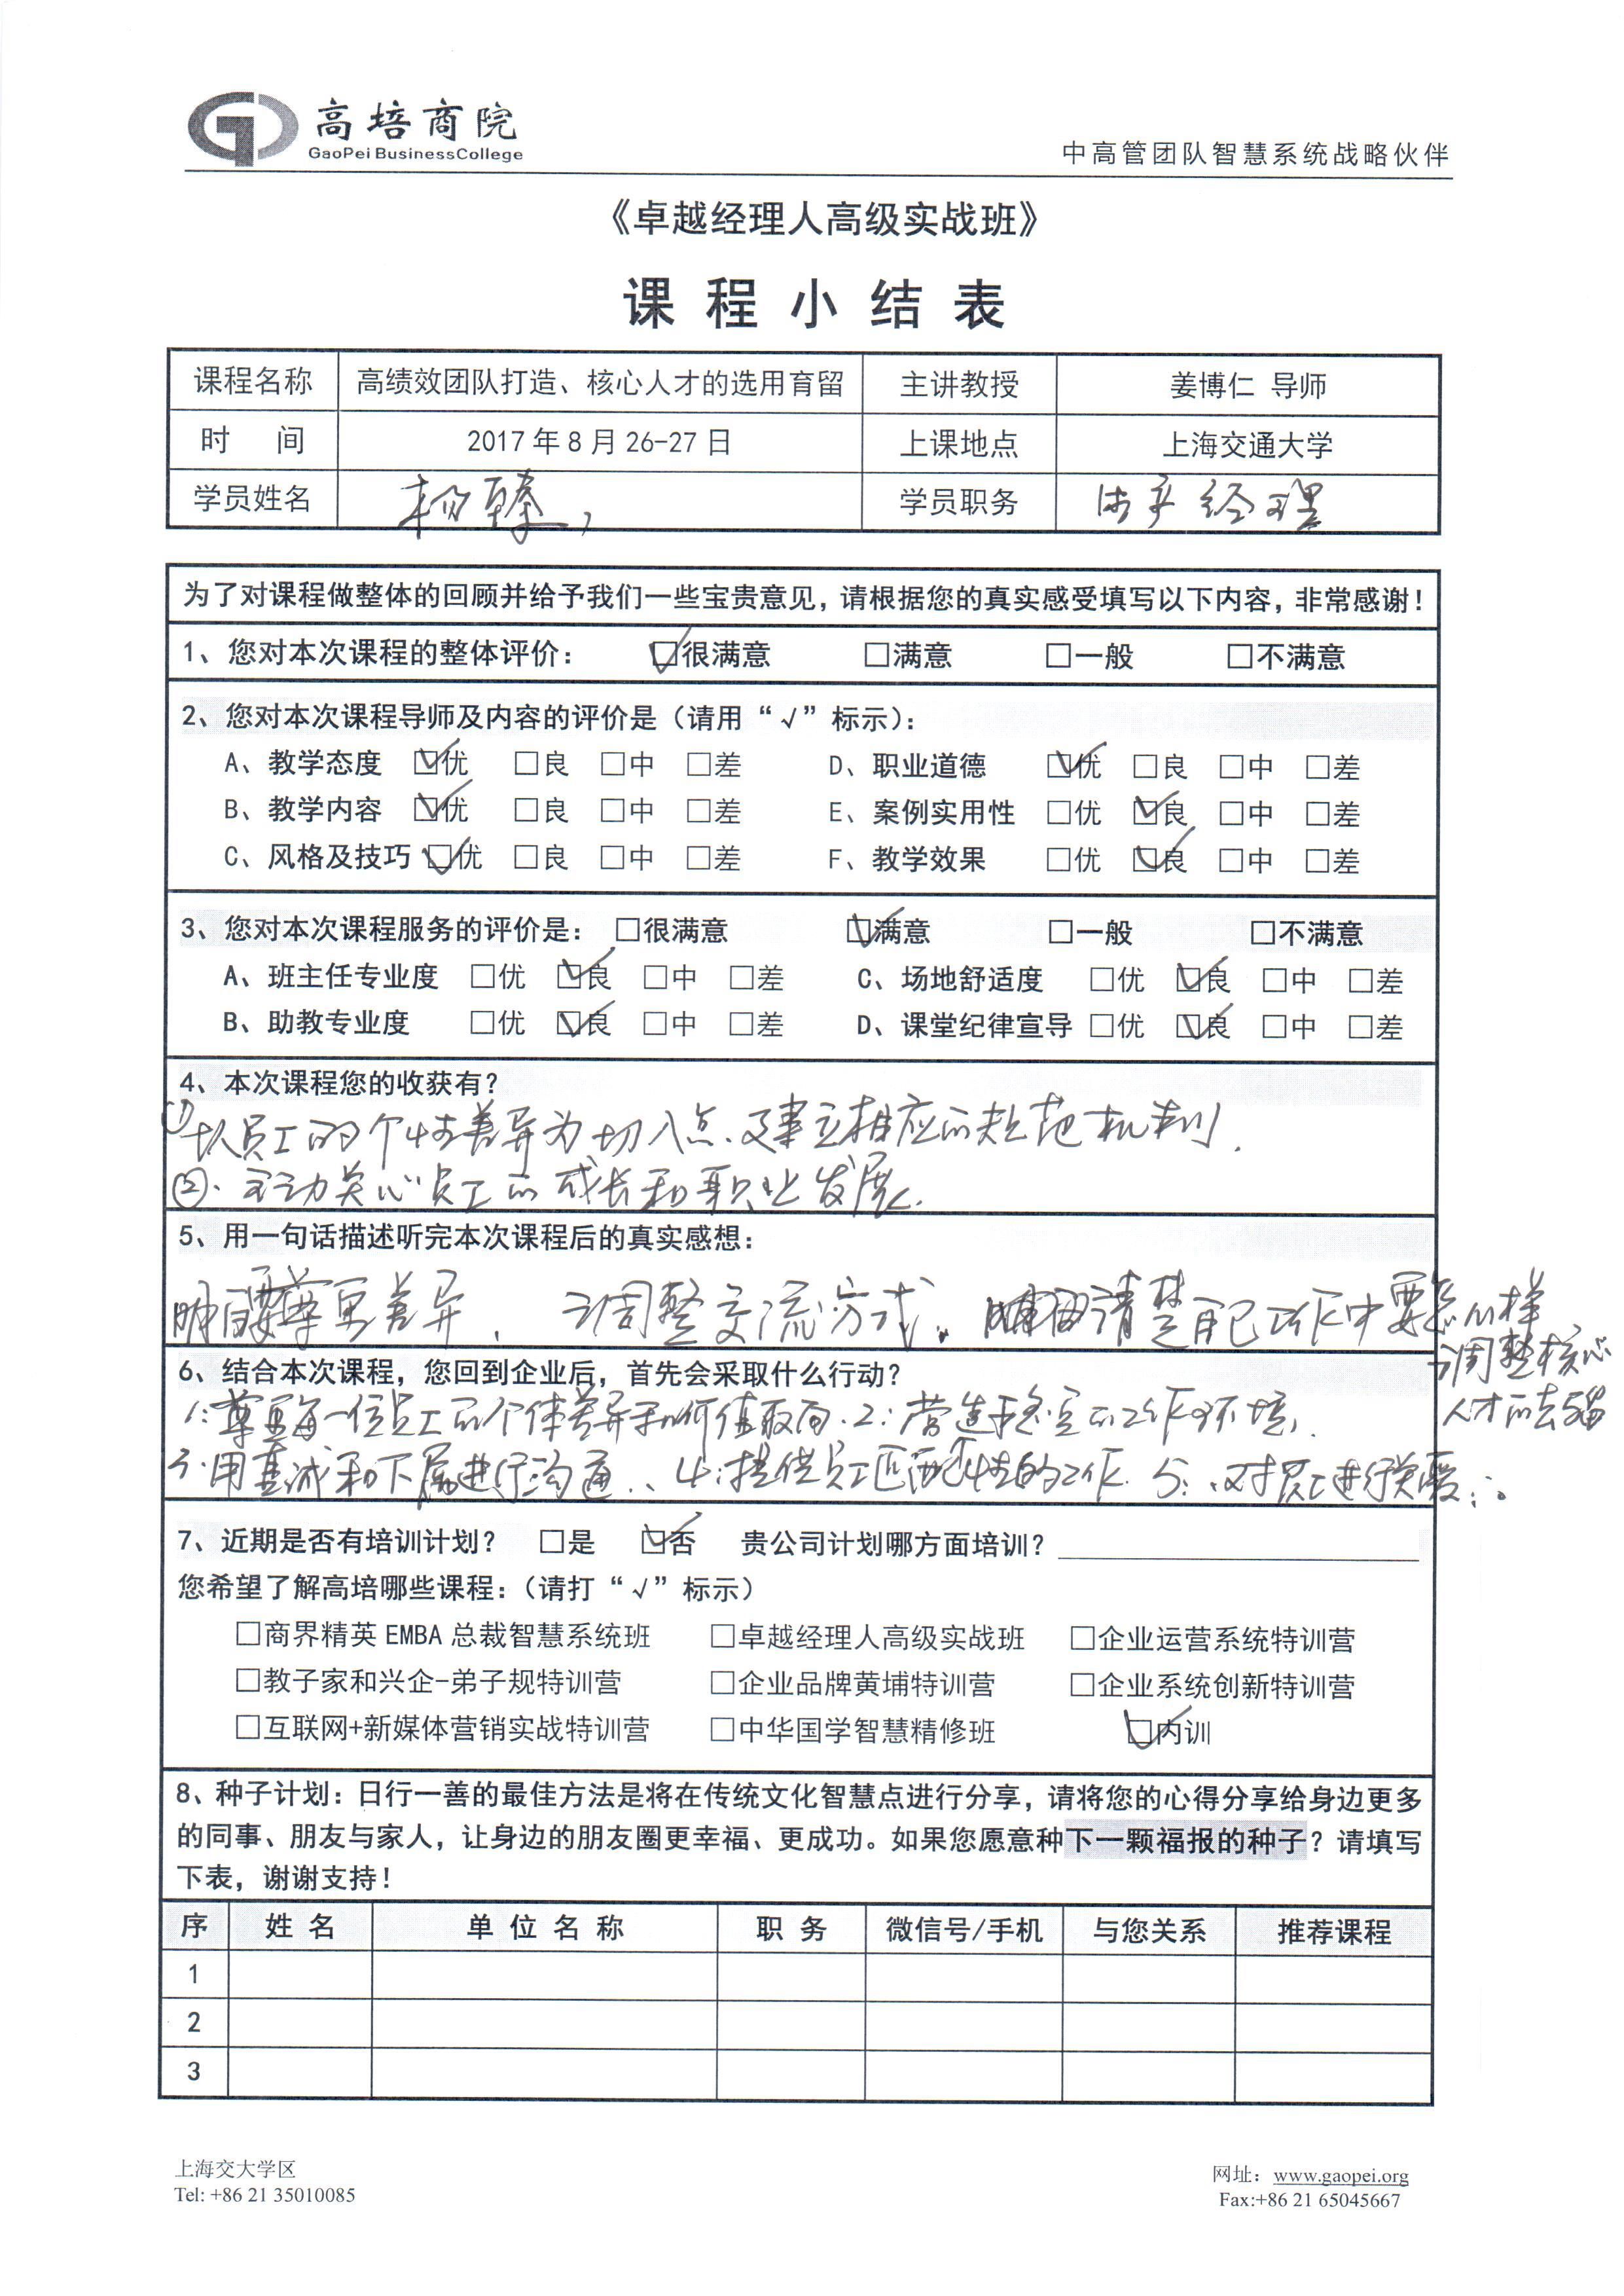 高培商院
GaoPei BusinessCollege
中高管团队智慧系统战略伙伴
《卓越经理人高级实战班》
课程小结表
课程名称 高绩效团队打造、核心人才的选用育留 主讲教授 姜博仁 导师
时 间 2017年8月26-27日 上课地点 上海交通大学
学员姓名 学员职务 经理
为了对课程做整体的回顾并给予我们一些宝贵意见，请根据您的真实感受填写以下内容，非常感谢！
1、您对本次课程的整体评价： ☑很满意 □满意 □一般 □不满意
2、您对本次课程导师及内容的评价是（请用“√”标示）：
A、教学态度 ☑优 □良 □中 □差 D、职业道德 ☑优 □良 □中 □差
B、教学内容 ☑优 □良 □中 □差 E、案例实用性 □优 ☑良 □中 □差
C、风格及技巧 ☑优 □良 □中 □差 F、教学效果 □优 ☑良 □中 □差
3、您对本次课程服务的评价是： □很满意 ☑满意 □一般 □不满意
A、班主任专业度 □优 ☑良 □中 □差 C、场地舒适度 □优 ☑良 □中 □差
B、助教专业度 □优 ☑良 □中 □差 D、课堂纪律宣导 □优 ☑良 □中 □差
4、本次课程您的收获有？
①以员工的个性差异为切入点、建立相应的规范机制.
②.主动关心员工的成长和职业发展.
5、用一句话描述听完本次课程后的真实感想：
明白要尊重差异、调整交流方式. 清楚自己工作中要怎么样
调整核心
人才的去留
6、结合本次课程，您回到企业后，首先会采取什么行动？
1:尊重每一位员工的个体差异和价值取向.2:营造稳定的工作环境.
3.用真诚和下属进行沟通.、4:提供员工匹配个性的工作. 5:、对员工进行关爱;。
7、近期是否有培训计划？ □是 ☑否 贵公司计划哪方面培训？
您希望了解高培哪些课程：（请打“√”标示）
□商界精英EMBA总裁智慧系统班 □卓越经理人高级实战班 □企业运营系统特训营
□教子家和兴企-弟子规特训营 □企业品牌黄埔特训营 □企业系统创新特训营
□互联网+新媒体营销实战特训营 □中华国学智慧精修班 ☑内训
8、种子计划：日行一善的最佳方法是将在传统文化智慧点进行分享，请将您的心得分享给身边更多
的同事、朋友与家人，让身边的朋友圈更幸福、更成功。如果您愿意种下一颗福报的种子？请填写
下表，谢谢支持！
序 姓名 单位名称 职务 微信号/手机 与您关系 推荐课程
1
2
3
上海交大学区 网址：www.gaopei.org
Tel: +86 21 35010085 Fax:+86 21 65045667